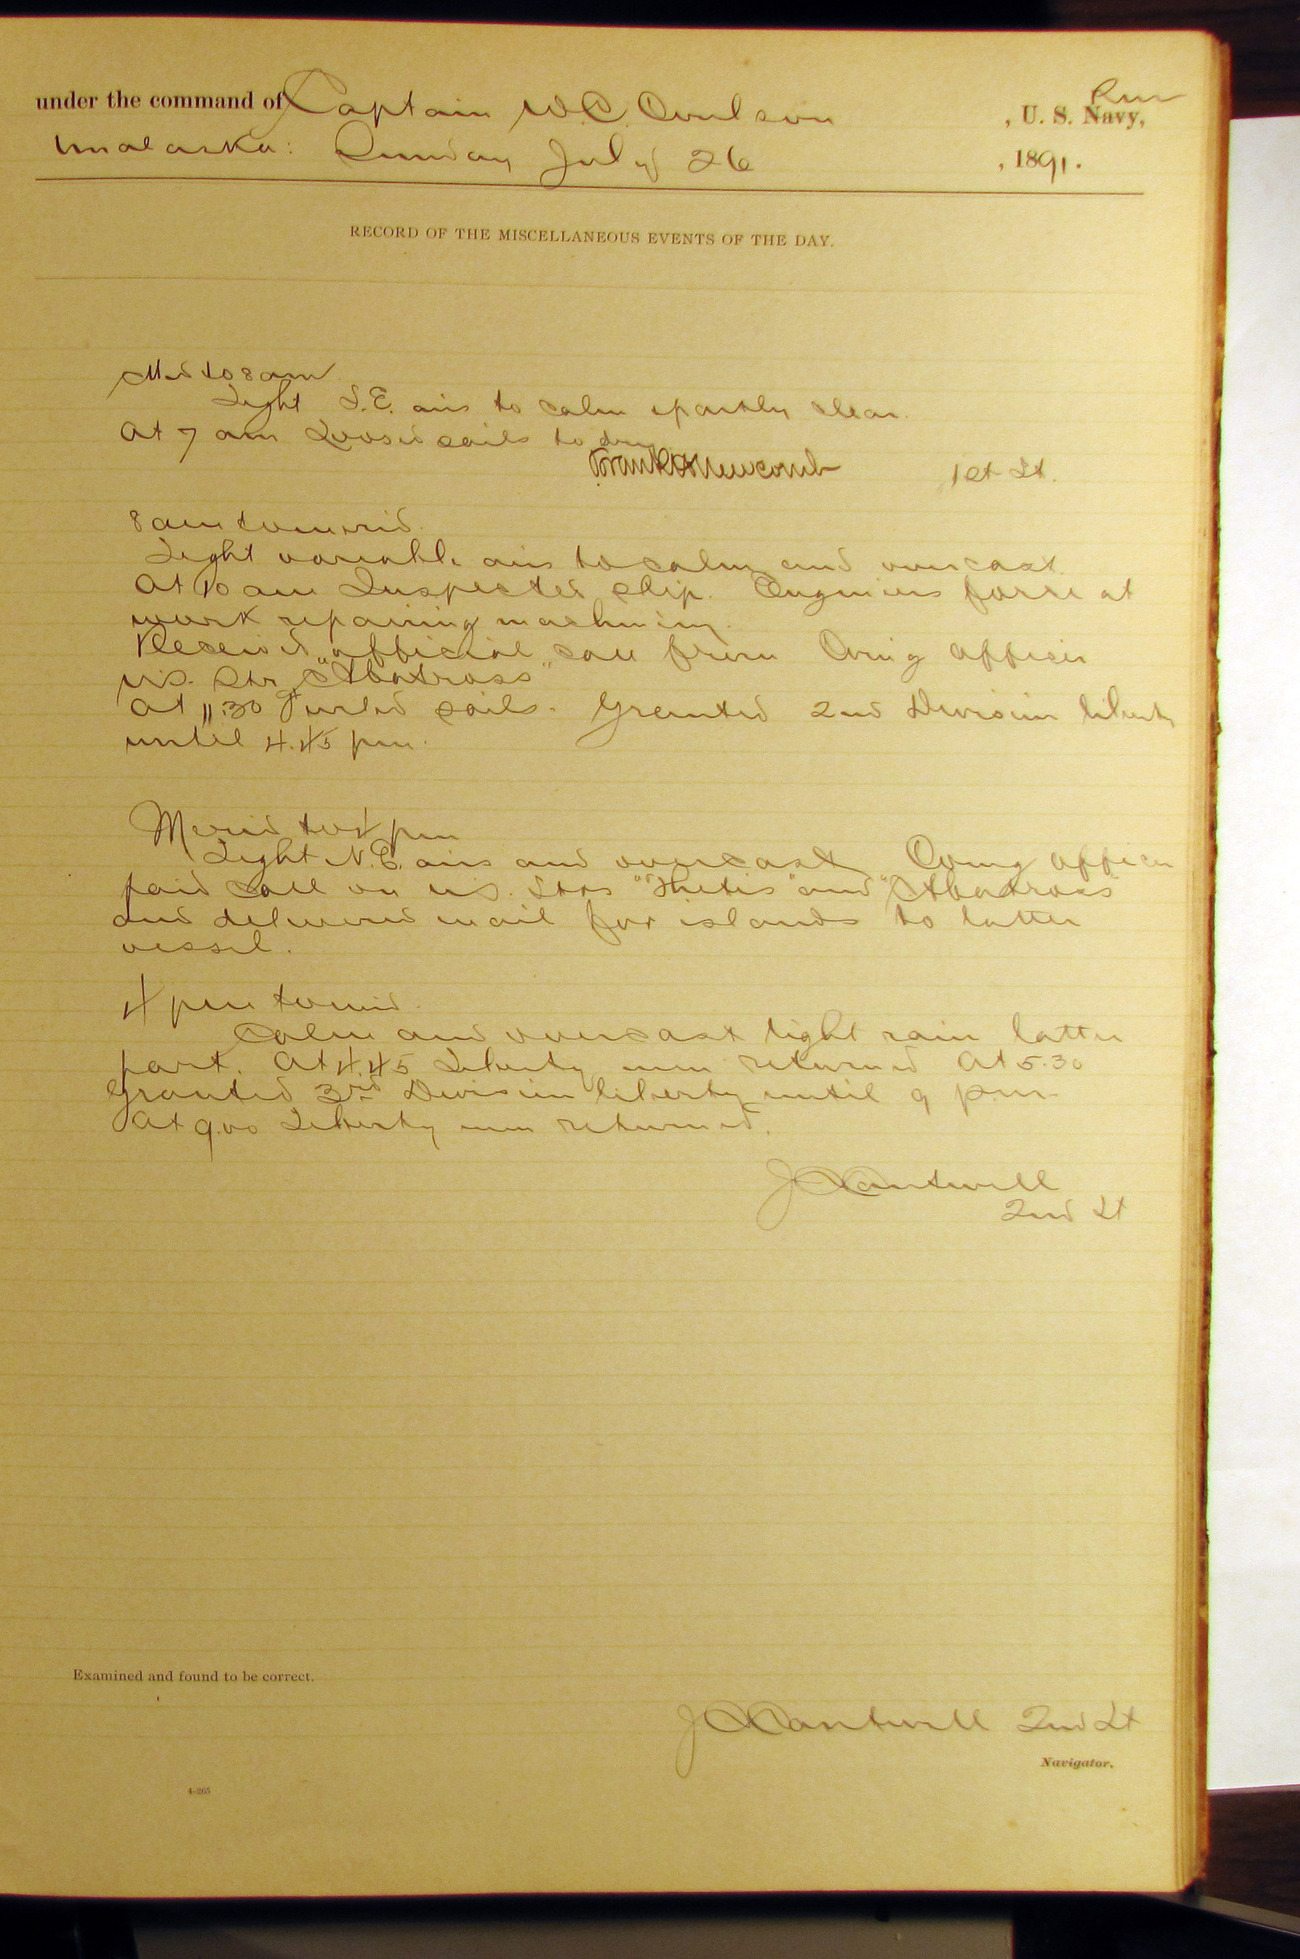 under the command of Captain W.C. Coulson , U. S. Navy, Rm
Unalaska: Sunday July 26 , 1891.
RECORD OF THE MISCELLANEOUS EVENTS OF THE DAY.
Mid to 8 am
Light S.E. airs to calm partly clear.
At 7 am Loosed sails to dry
Frank H Newcomb 1st Lt.
8 am to merid.
Light variable airs to calm and overcast.
At 10 am Inspected ship. Engineers force at
work repairing machinery.
Received official call from Comg officer
U.S. Str "Albatross"
At 11.30 Furled sails. Granted 2nd Division liberty
until 4.45 pm.
Merid to 4 pm
Light N.E. airs and overcast Comg officer
paid call on U.S. Strs "Thetis" and "Albatross"
and delivered mail for islands to latter
vessel.
4 pm to mid.
Calm and overcast light rain latter
part. At 4.45 Liberty men returned At 5.30
Granted 3rd Division liberty until 9 pm.
At 9.00 Liberty men returned.
J C Cantwell
2nd Lt
Examined and found to be correct.
J C Cantwell 2nd Lt
Navigator.
4-265